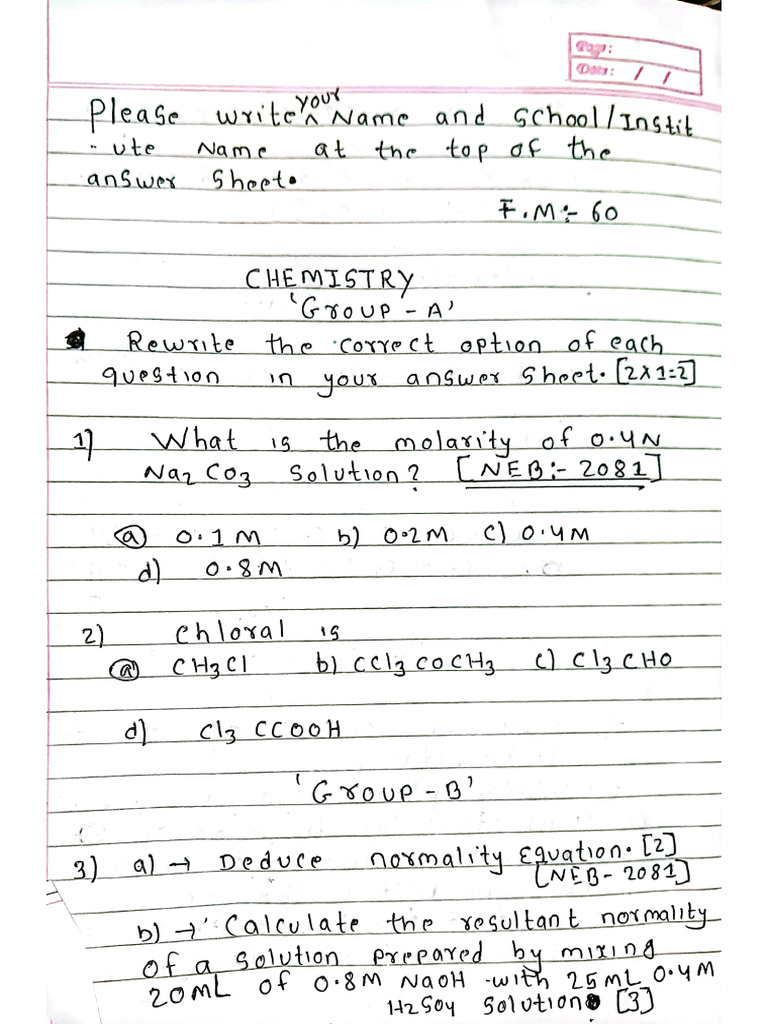 Page:
Date: / /
Please write ^ your Name and School/Instit
-ute Name at the top of the
answer Sheet.
F.M:- 60
CHEMISTRY
'Group - A'
Rewrite the correct option of each
question in your answer sheet. [2x1=2]
1) What is the molarity of 0.4N
Na2 CO3 solution? [NEB:- 2081]
a) 0.1M b) 0.2M c) 0.4M
d) 0.8M
2) chloral is
a) CH3Cl b) CCl3COCH3 c) Cl3CHO
d) Cl3 CCOOH
'Group - B'
3) a) → Deduce normality Equation. [2]
[NEB- 2081]
b) → Calculate the resultant normality
of a solution prepared by mixing
20mL of 0.8M NaOH with 25mL 0.4M
H2SO4 solution [3]